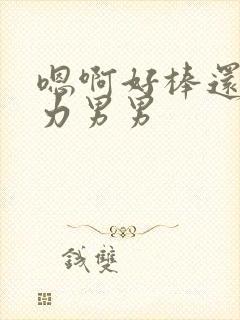 嗯啊好棒還
力男男
錢雙